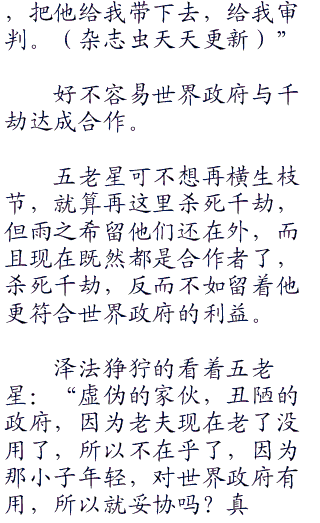 ，把他给我带下去，给我审
判。（杂志虫天天更新）”
好不容易世界政府与千
劫达成合作。
五老星可不想再横生枝
节，就算再这里杀死千劫，
但雨之希留他们还在外，而
且现在既然都是合作者了，
杀死千劫，反而不如留着他
更符合世界政府的利益。
泽法狰狞的看着五老
星：“虚伪的家伙，丑陋的
政府，因为老夫现在老了没
用了，所以不在乎了，因为
那小子年轻，对世界政府有
用，所以就妥协吗？真